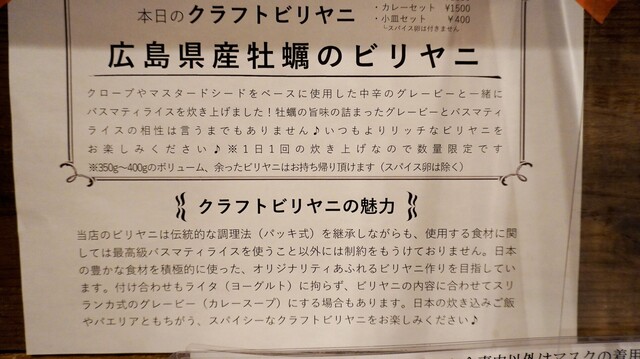 本日のクラフトビリヤニ
・カレーセット ¥1500
・小皿セット ¥400
└スパイス卵は付きません
広島県産牡蠣のビリヤニ
クローブやマスタードシードをベースに使用した中辛のグレービーと一緒に
バスマティライスを炊き上げました！牡蠣の旨味の詰まったグレービーとバスマティ
ライスの相性は言うまでもありません♪いつもよりリッチなビリヤニを
お楽しみください♪※1日1回の炊き上げなので数量限定です
※350g〜400gのボリューム、余ったビリヤニはお持ち帰り頂けます（スパイス卵は除く）
クラフトビリヤニの魅力
当店のビリヤニは伝統的な調理法（パッキ式）を継承しながらも、使用する食材に関
しては最高級バスマティライスを使うこと以外には制約をもうけておりません。日本
の豊かな食材を積極的に使った、オリジナリティあふれるビリヤニ作りを目指してい
ます。付け合わせもライタ（ヨーグルト）に拘らず、ビリヤニの内容に合わせてスリ
ランカ式のグレービー（カレースープ）にする場合もあります。日本の炊き込みご飯
やパエリアともちがう、スパイシーなクラフトビリヤニをお楽しみください♪
以外はマスクの着用